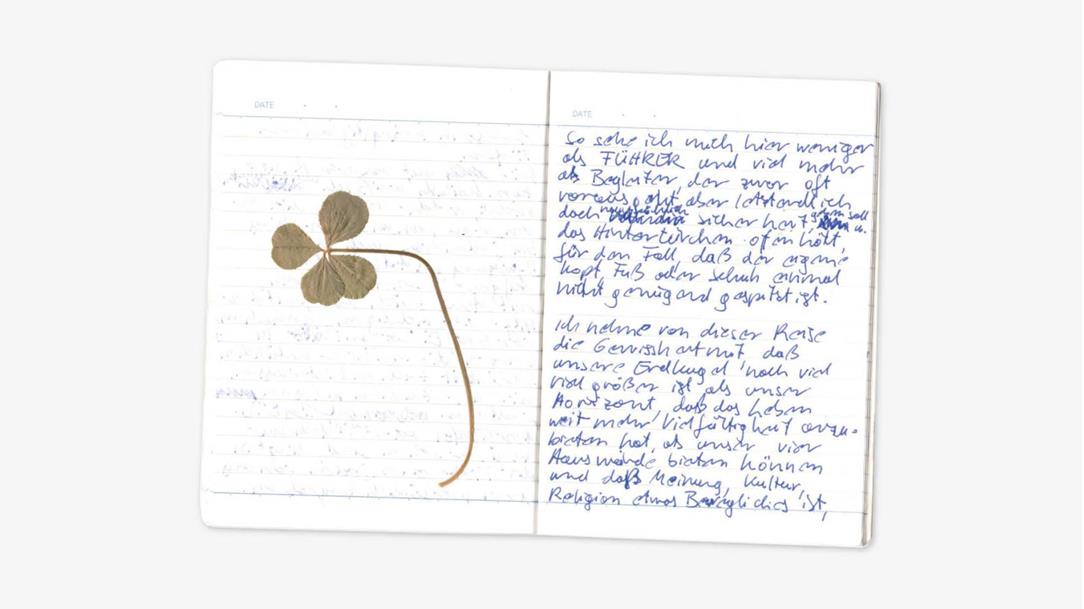 DATE
DATE
So sehe ich mich hier weniger
als FÜHRER und viel mehr
als Begleiter, der zwar oft
vorausgeht, aber letztendlich
doch sicherheit,
das Hintertürchen offen hält,
für den Fall, daß der eigene
Kopf, Fuß oder Schuh einmal
nicht genügend gespitzt ist.
Ich nehme von dieser Reise
die Gewissheit mit, daß
unsere Erdkugel noch viel
viel größer ist als unser
Horizont, daß das Leben
weit mehr Vielfältigkeit anzu-
bieten hat, als unser vier
Hauswände bieten können
und daß Meinung, Kultur,
Religion etwas Bewegliches ist,